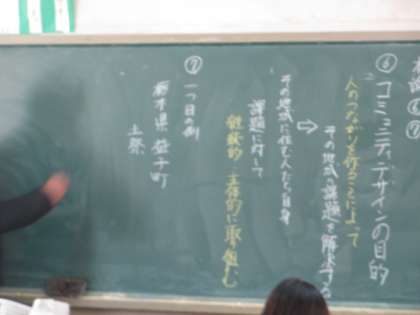 ⑥⑦
⑥ コミュニティデザインの目的
人のつながりを作ることによって
その地域の課題を解決する
⇨ その地域に住む人たち自身
課題に対して
継続的 主体的に取り組む
⑦ 一つ目の例
栃木県 益子町
土祭